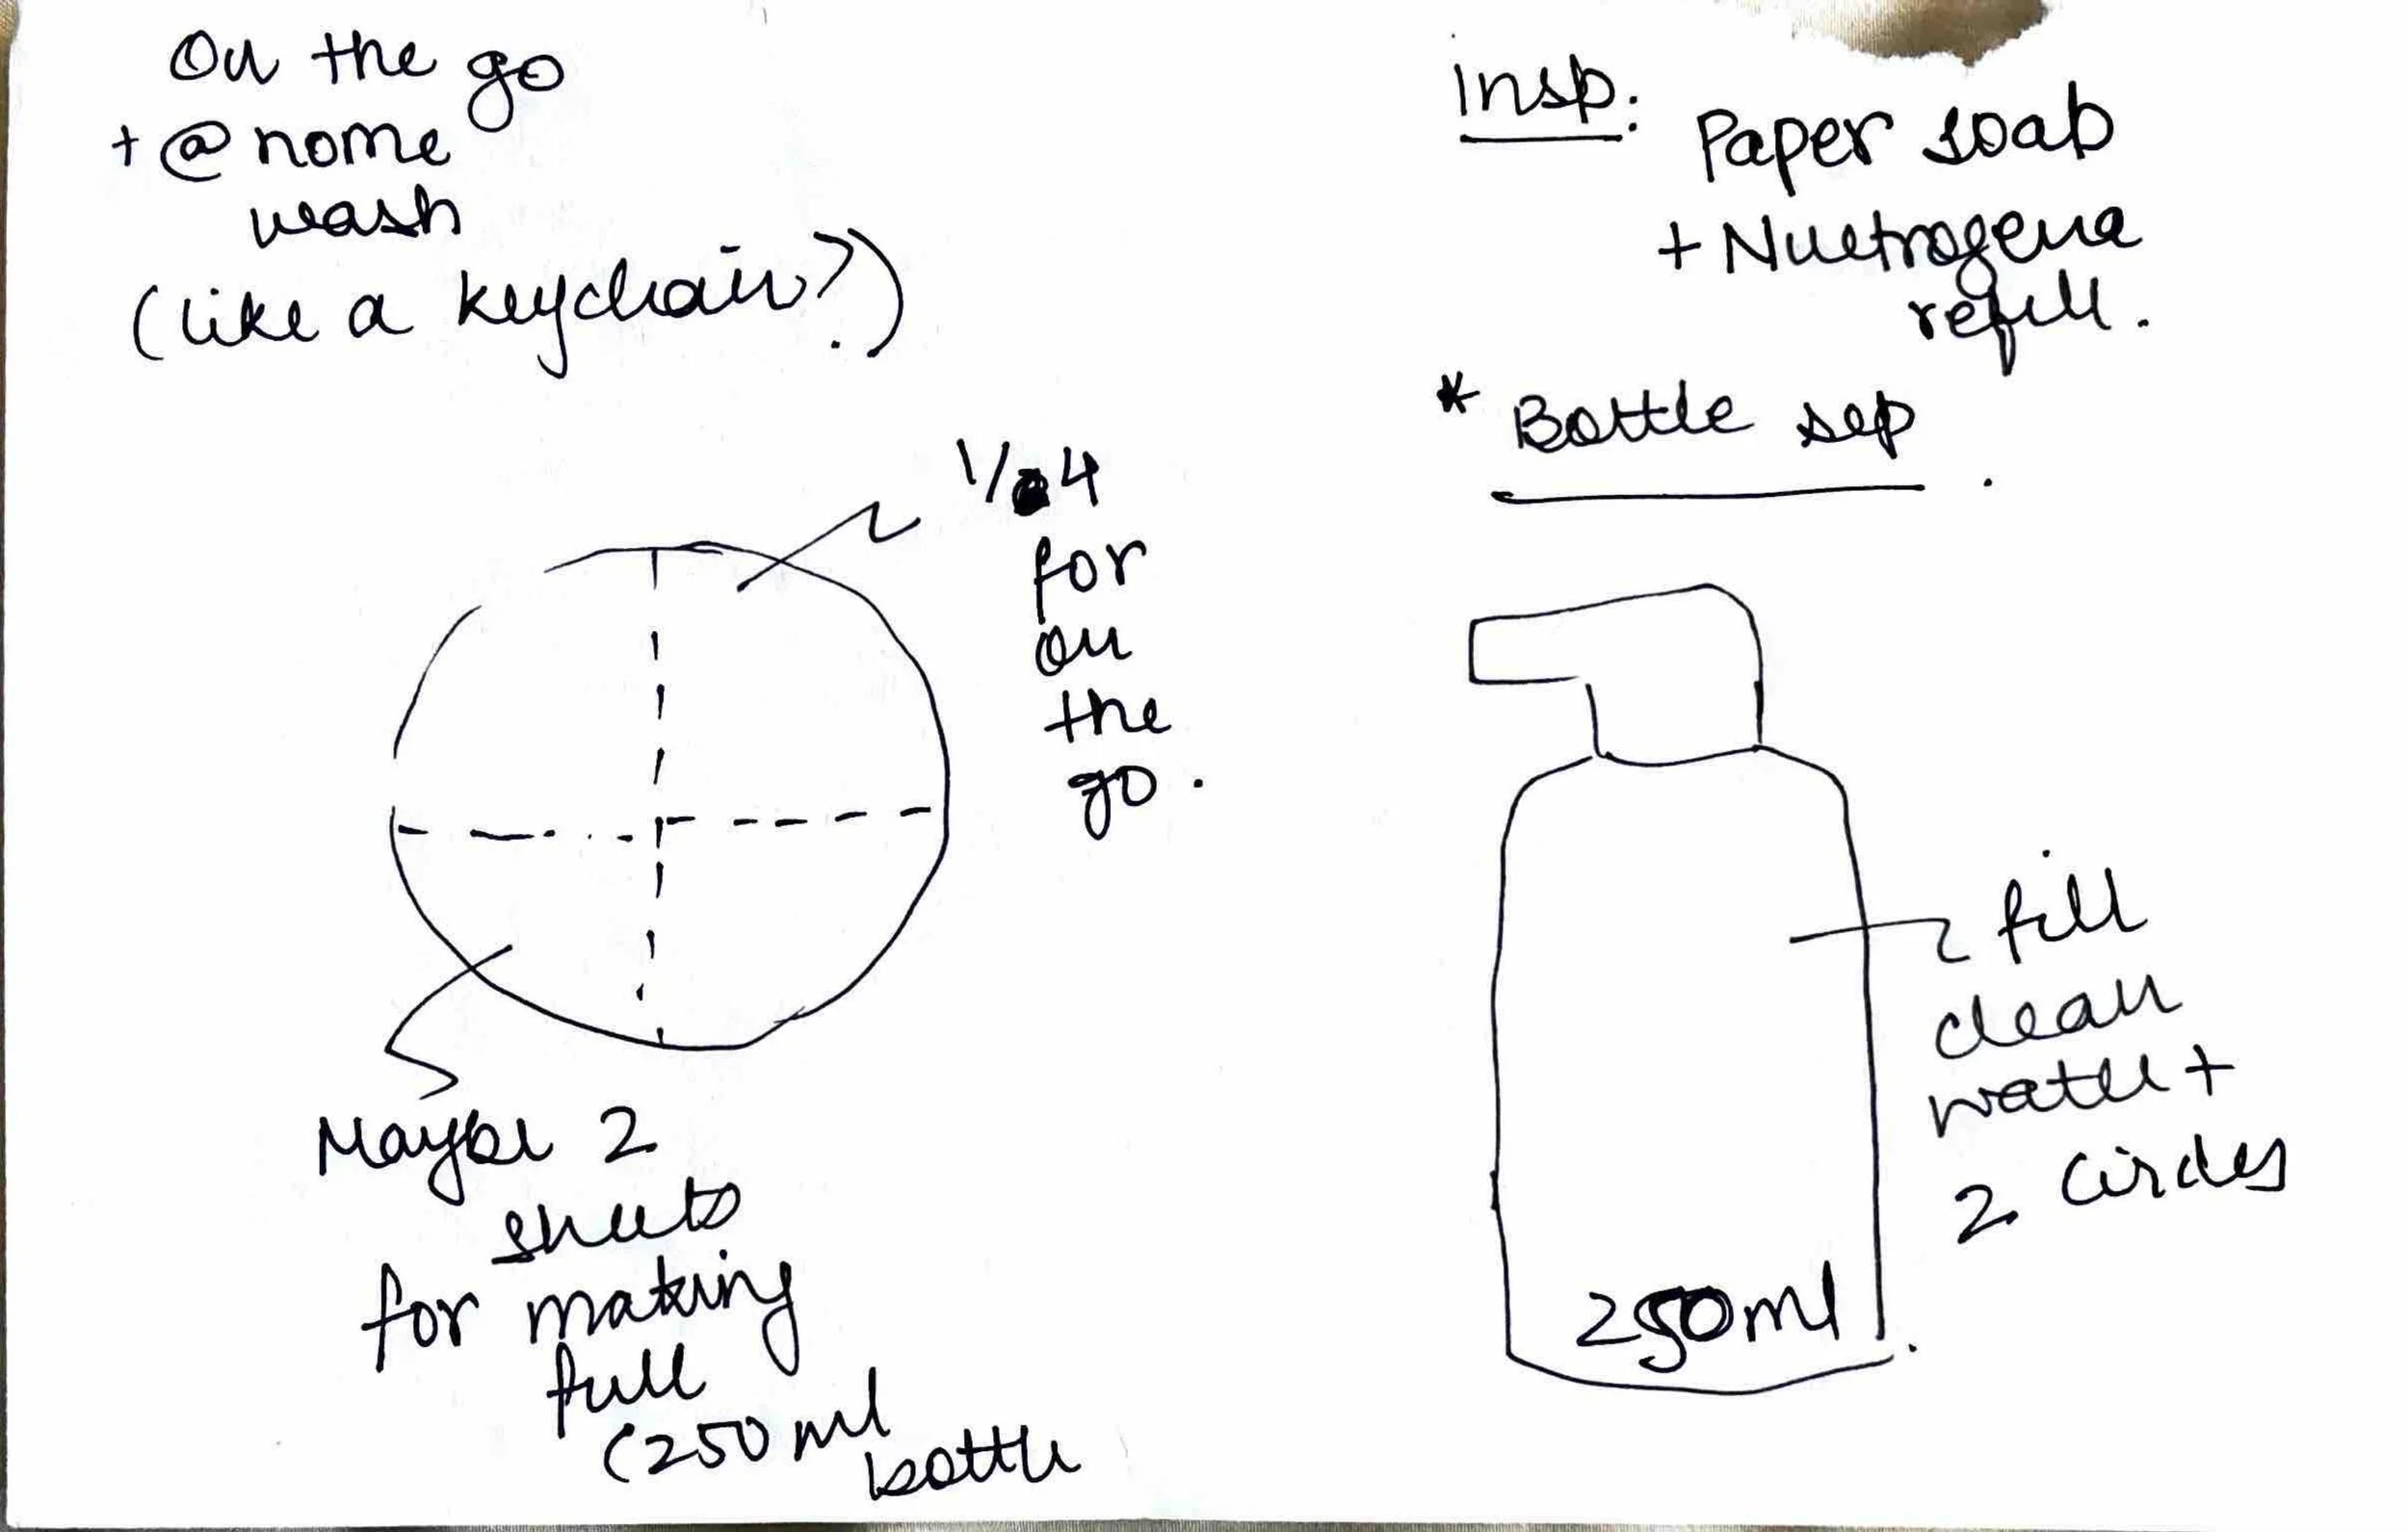 On the go
+ @ home
wash
(like a keychain?)
Insp:
Paper soap
+ Nuetrogena
refill.
* Bottle sep
1/4
for
on
the
go.
Maybe 2
sheets
for making
full
(250 ml
bottle
fill
clean
water +
2 circles
250ml